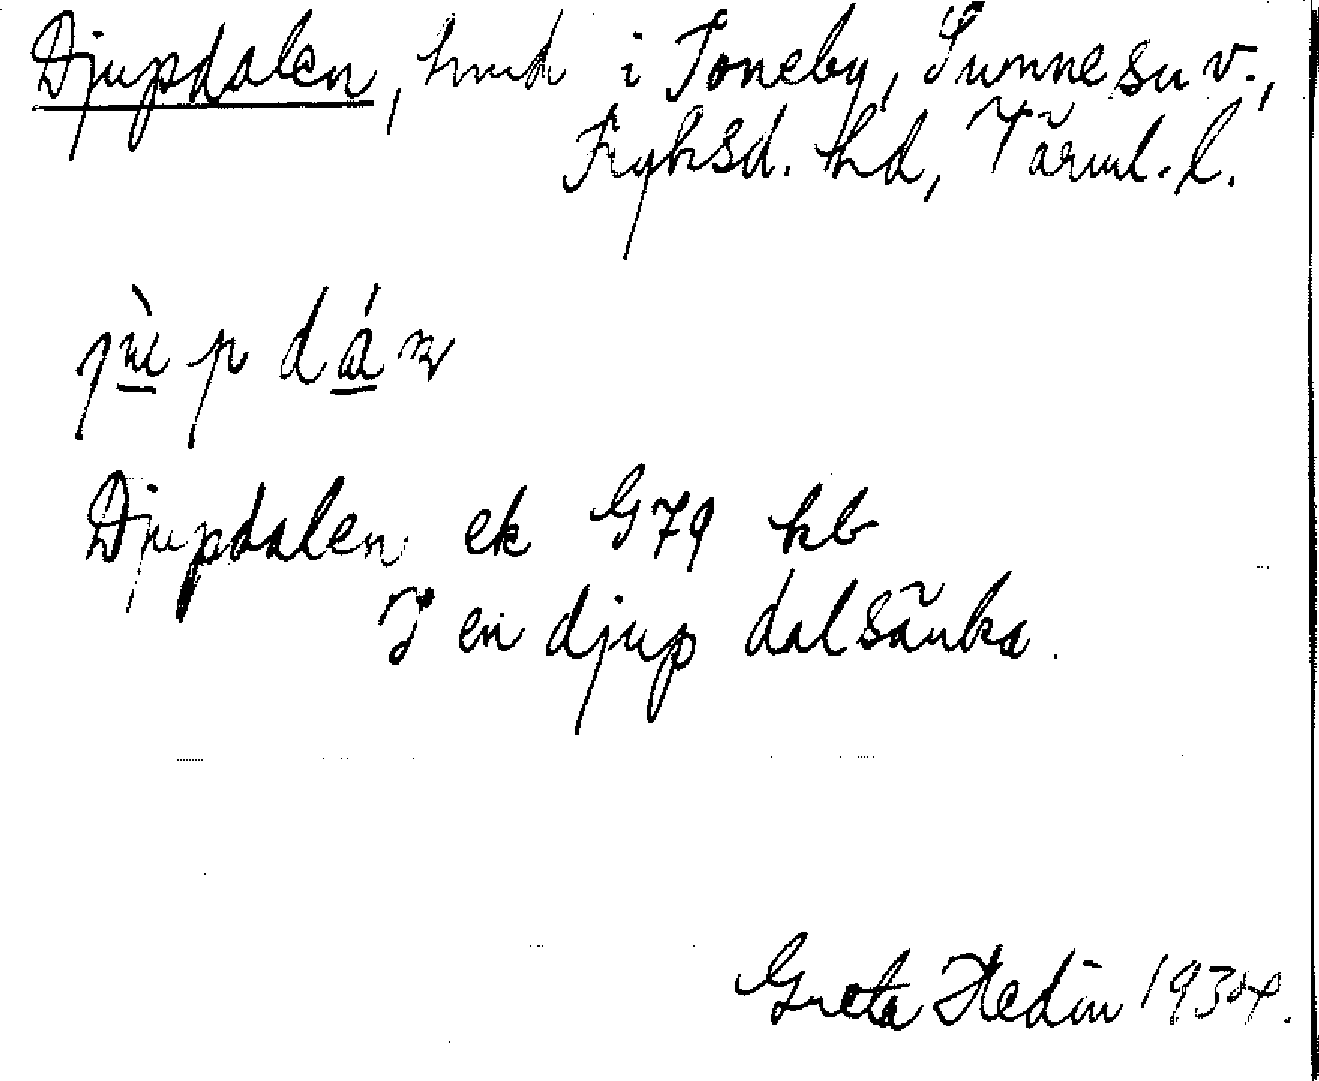 Djupdalen, hmd i Toneby, Sunne sn v.,
Fryksd. hd, Värml. l.
Djupdalen ek G79 kb
I en djup dalsänka.
Greta Hedin 1934.